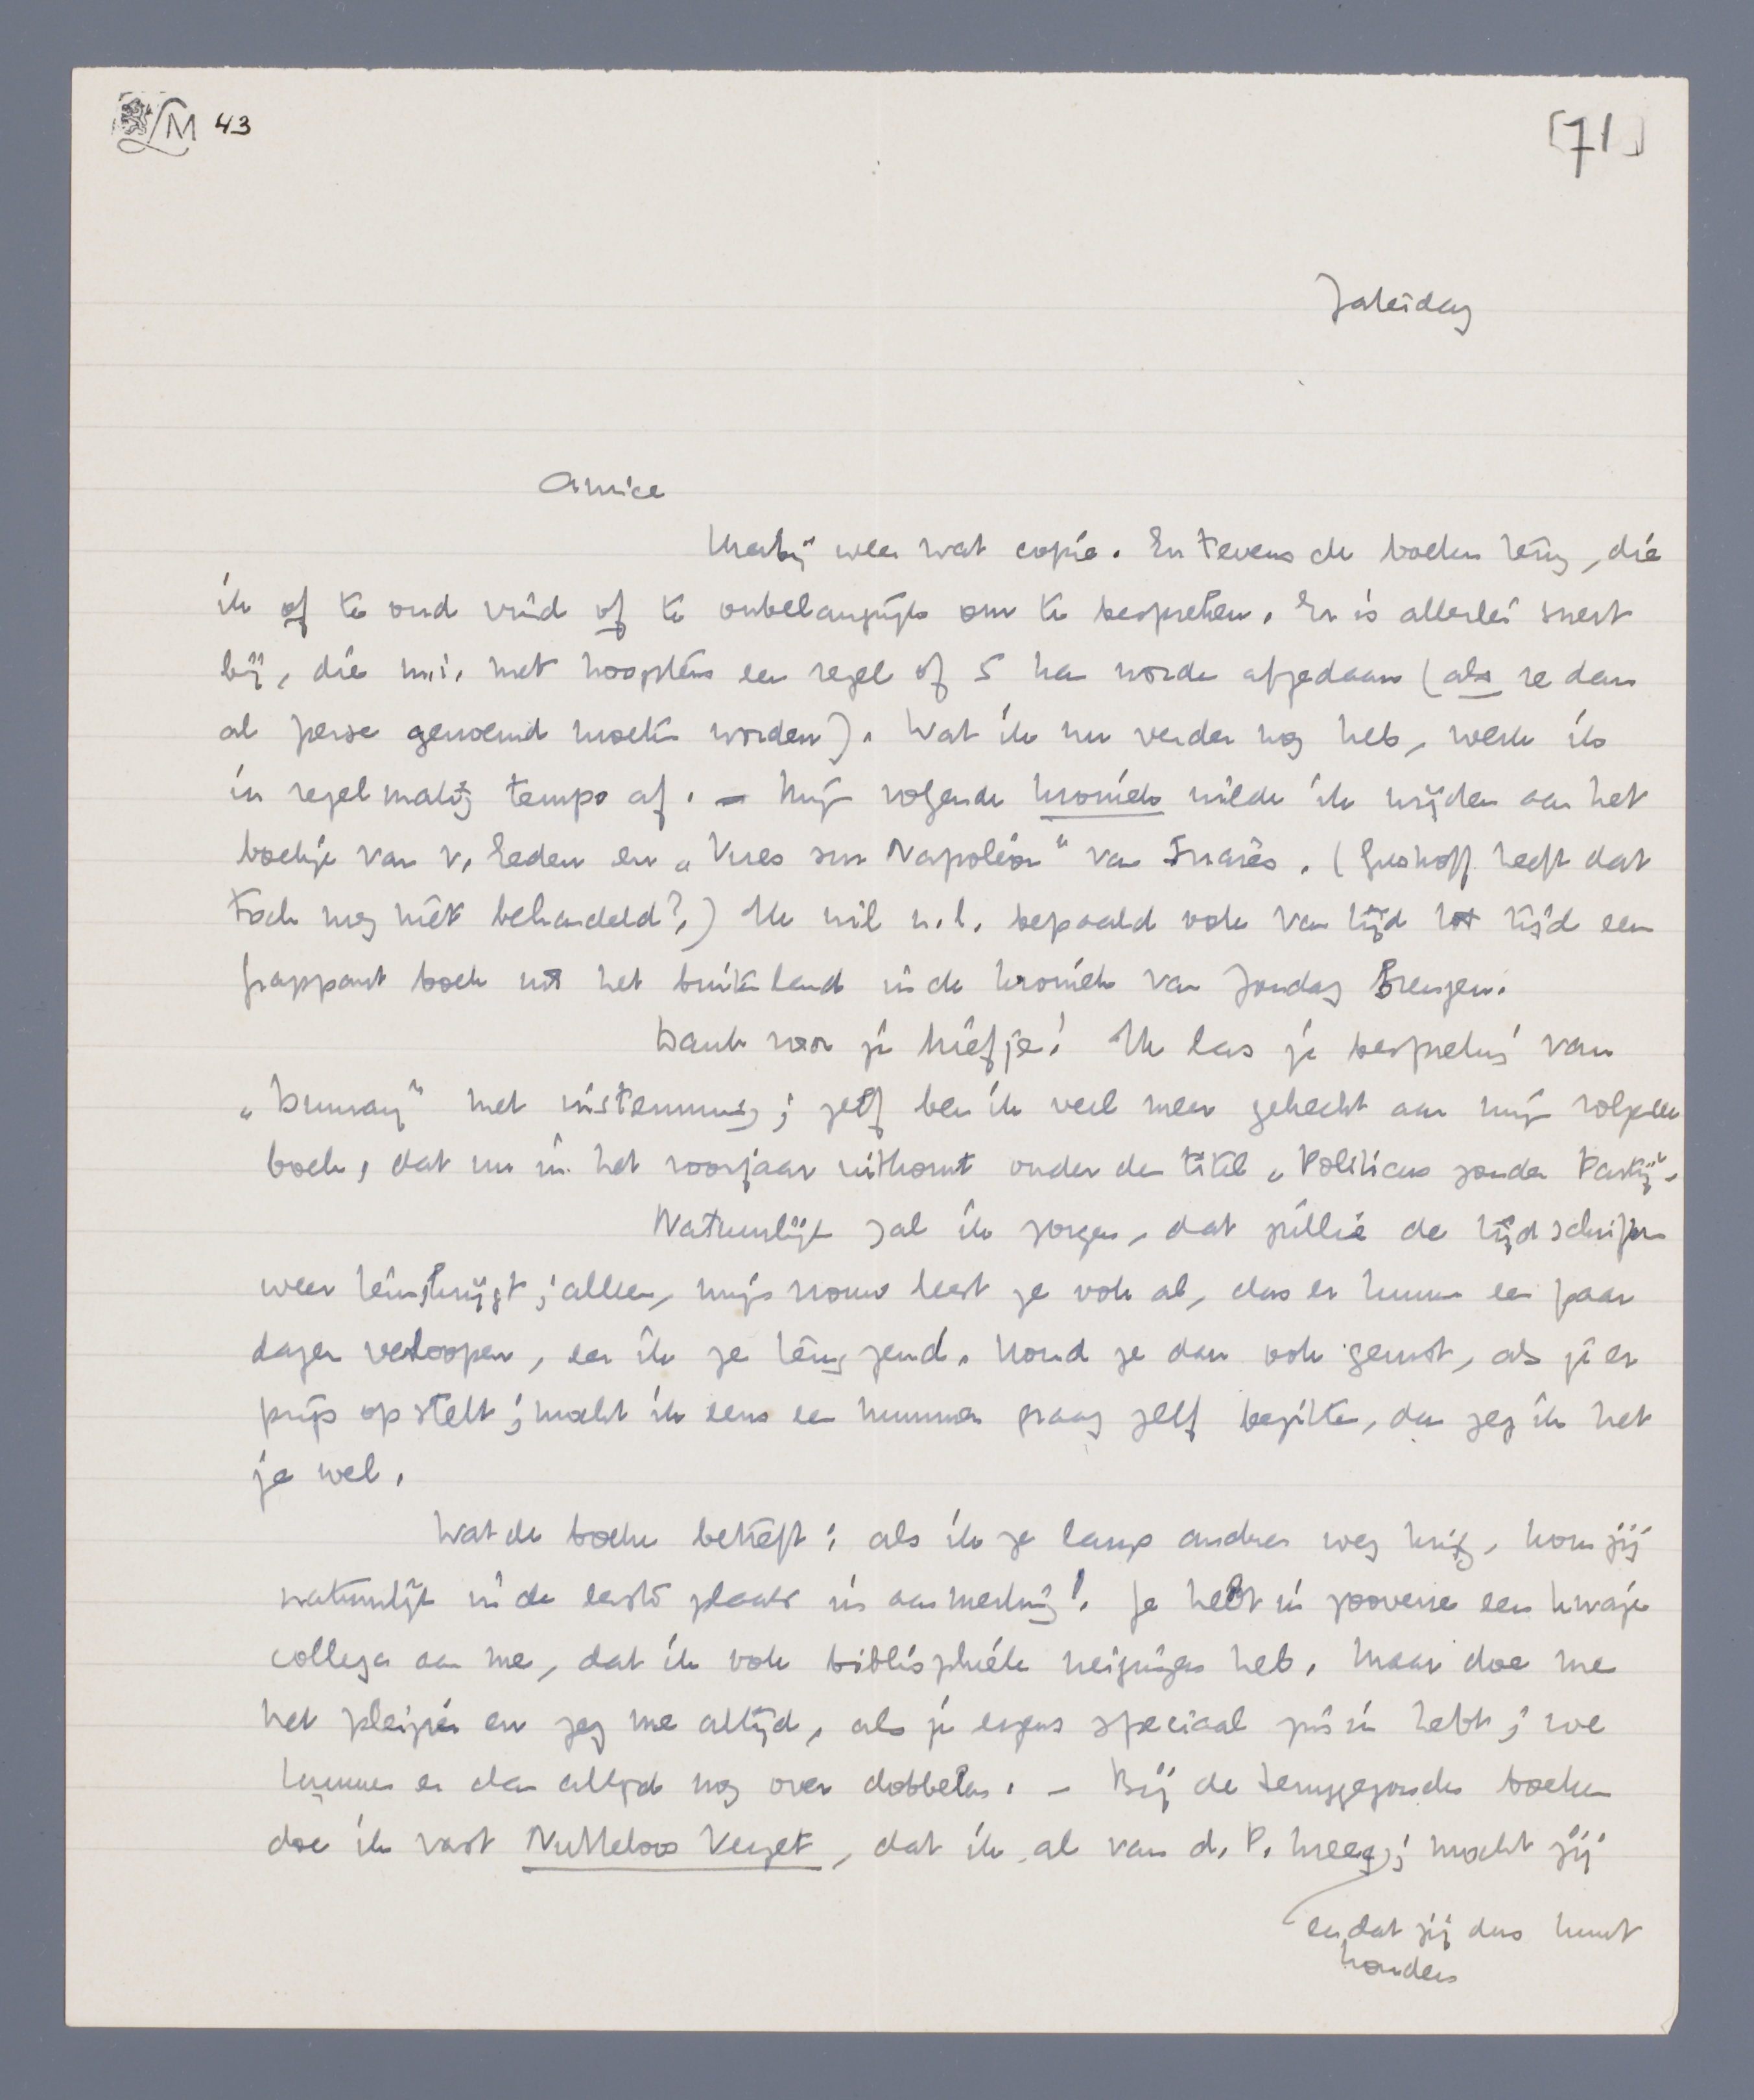 LM 43
[71]
Zaterdag
Amice
Hierbij weer wat copie. En tevens de boeken terug, die
ik of te oud vind of te onbelangrijk om te bespreken. Er is allerlei snert
bij, die m.i. met hoogstens een regel of 5 kan worden afgedaan (als ze dan
al perse genoemd moeten worden). Wat ik nu verder nog heb, werk ik
in regelmatig tempo af. – Mijn volgende kroniek wilde ik wijden aan het
boekje van v. Eeden en „Vues sur Napoléon" van Suarès. (Greshoff heeft dat
toch nog niet behandeld?) Ik wil n.l. bepaald ook van tijd tot tijd een
frappant boek uit het buitenland in de kroniek van Zondag brengen.
Dank voor je briefje! Ik las je bespreking van
„Dumay" met instemming; zelf ben ik veel meer gehecht aan mijn volgend
boek, dat nu in het voorjaar uitkomt onder den titel „Politicus zonder Partij".
Natuurlijk zal ik zorgen, dat jullie de tijdschriften
weer terugkrijgt; alleen, mijn vrouw leest ze ook al, dus er kunnen een paar
dagen verloopen, eer ik ze terugzend. Houd ze dan ook gerust, als je er
prijs op stelt; mocht ik eens een nummer graag zelf bezitten, dan zeg ik het
je wel.
Wat de boeken betreft: als ik ze langs anderen weg krijg, kom jij
natuurlijk in de eerste plaats in aanmerking! Je hebt in zooverre een kwaje
collega aan me, dat ik ook bibliophiele neigingen heb. Maar doe me
het pleizier en zeg me altijd, als je ergens speciaal zin in hebt; we
kunnen er dan altijd nog over dobbelen. – Bij de teruggezonden boeken
doe ik vast Nutteloos Verzet, dat ik al van d. P. kreeg; mocht jij
en dat jij dus kunt
houden